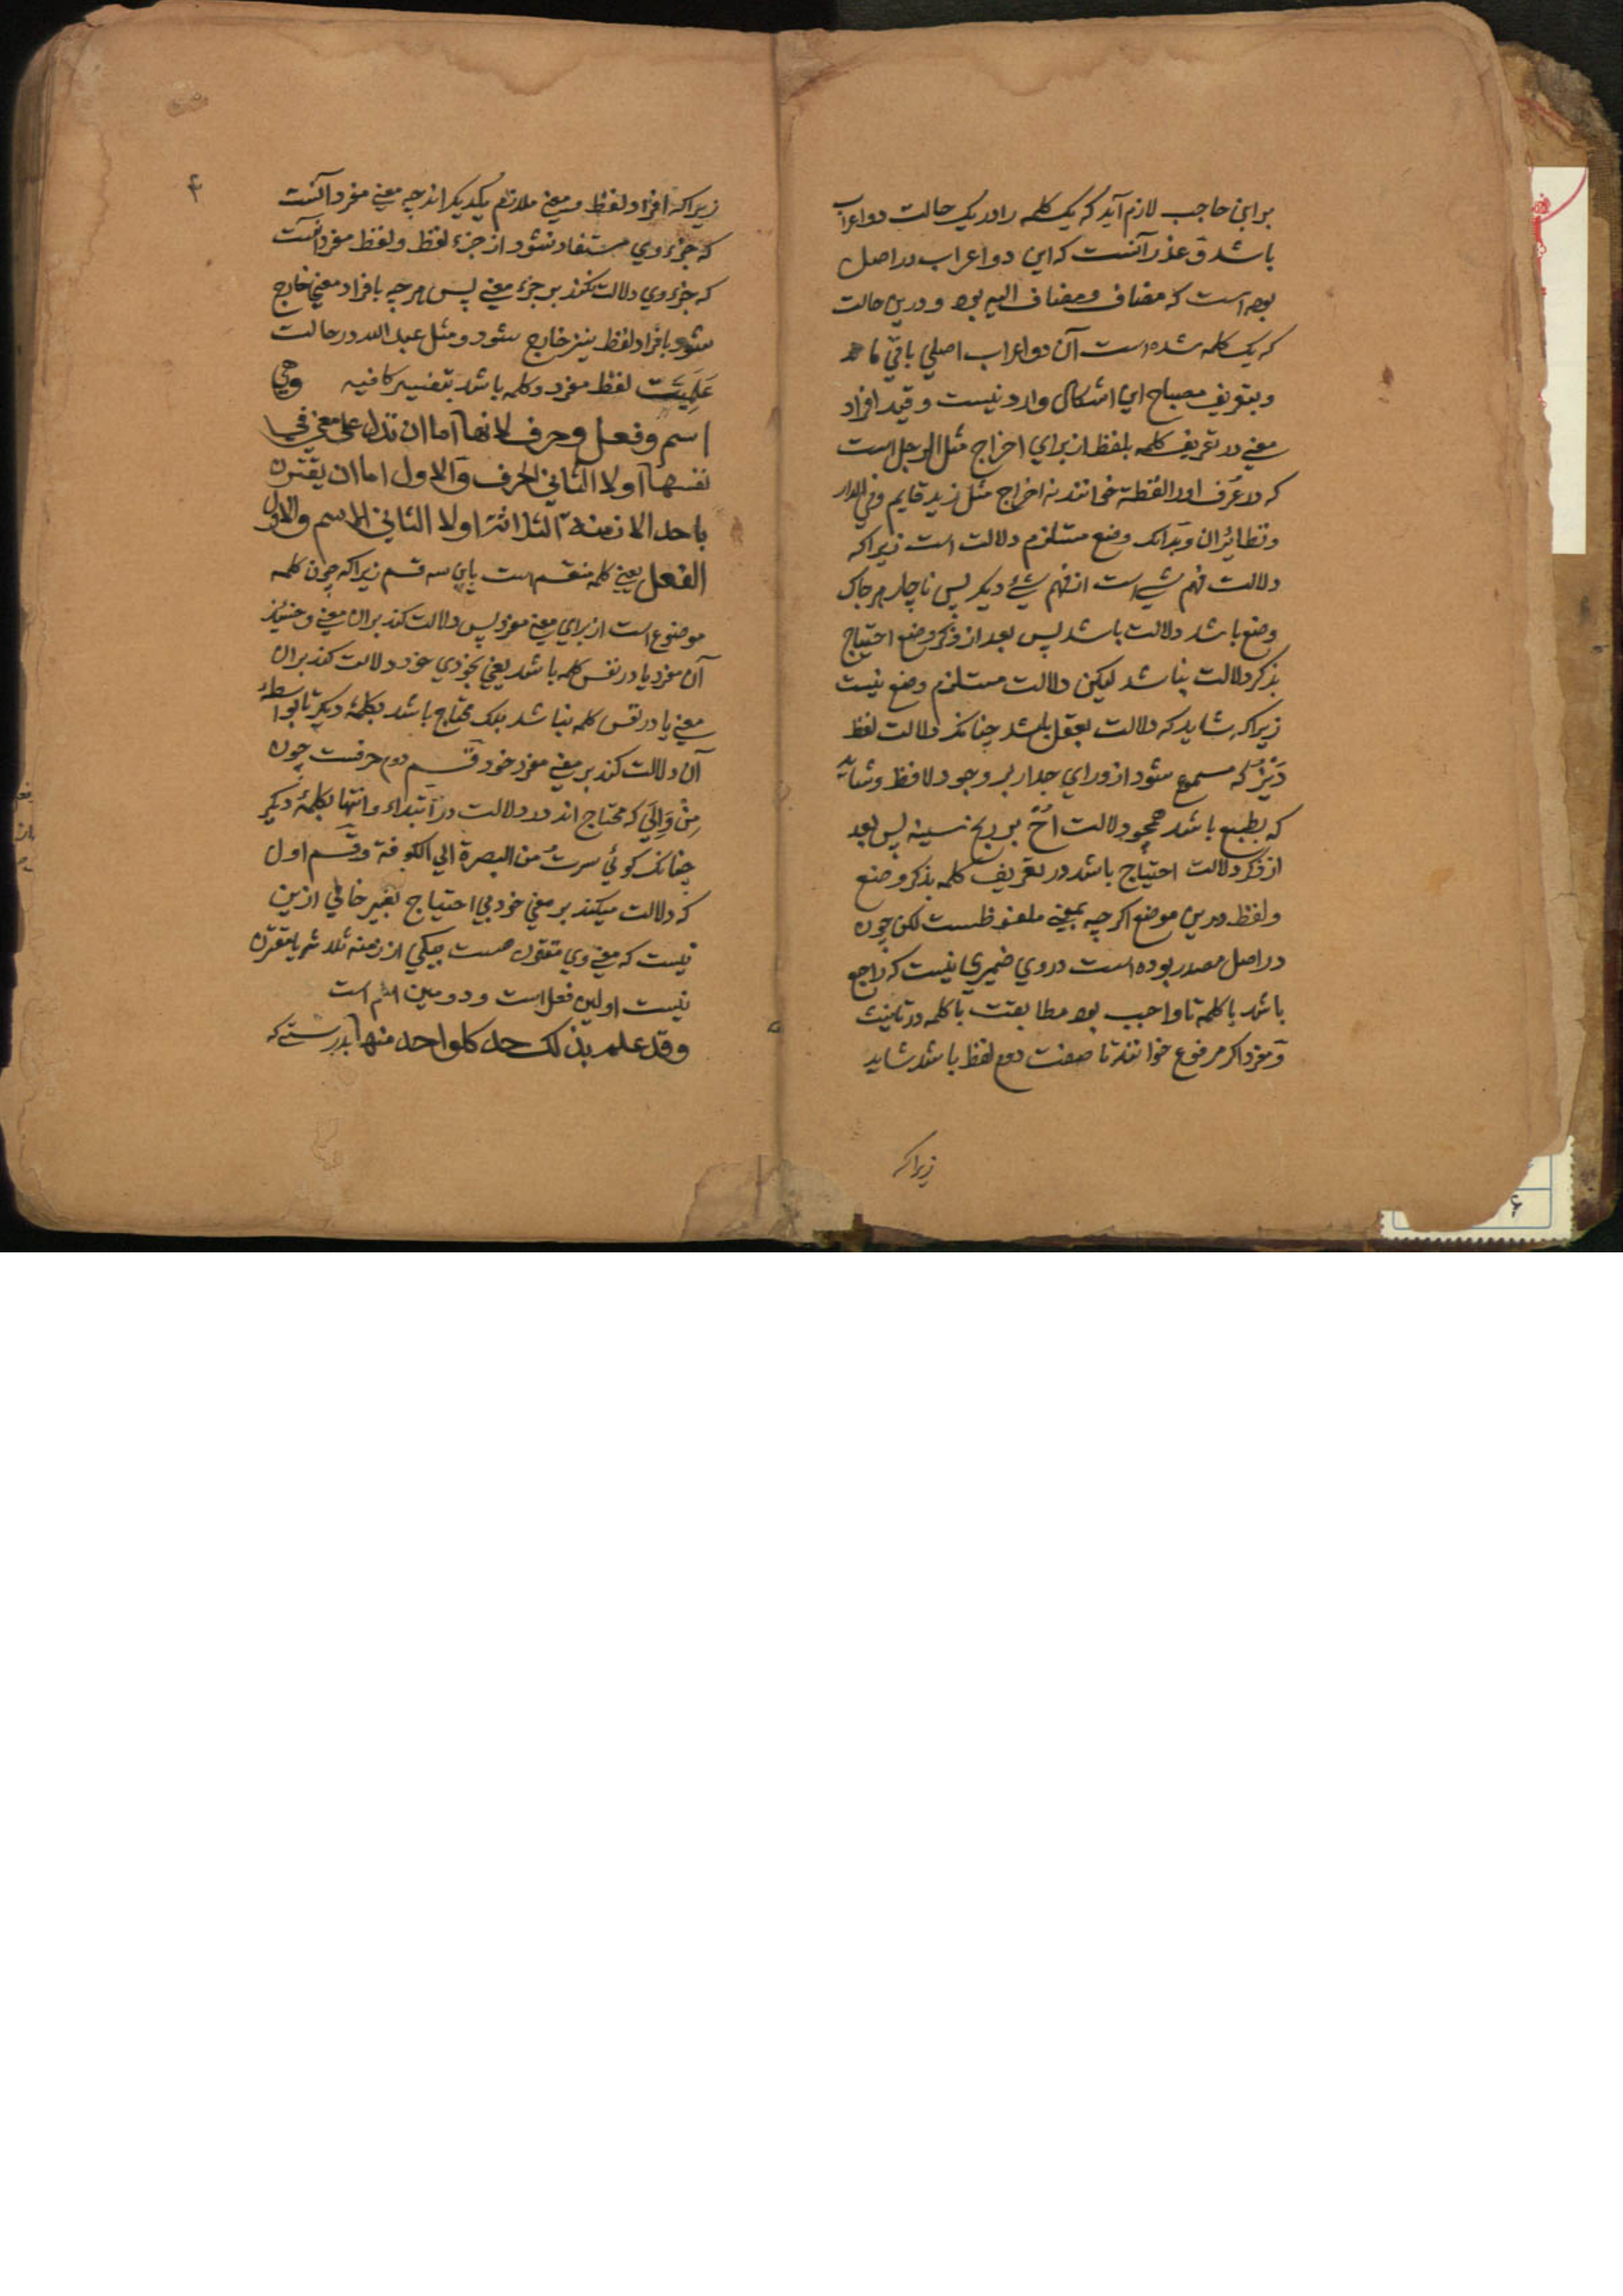 بر ابن حاجب لازم آید که یک کلمه را در یک حالت دو اعراب
باشد و عذر آنست که این دو اعراب در اصل
بوده است که مضاف و مضاف الیه بود و درین حالت
که یک کلمه شده است آن دو اعراب اصلی باقی ماند
و بتعریف مصباح این اشکال وارد نیست و قید افراد
معنی در تعریف کلمه بلفظ از برای اخراج مثل الرجل است
که در عرف او را لفظة خوانند نه اخراج مثل زید قایم و فی الدار
و نظائر آن و بدانک وضع مستلزم دلالت است زیراکه
دلالت فهم شیء است از فهم شیء دیگر پس ناچار هر جا که
وضع باشد دلالت باشد پس بعد از ذکر وضع احتیاج
بذکر دلالت نباشد لیکن دلالت مستلزم وضع نیست
زیراکه شاید که دلالت بعقل باشد چنانک دلالت لفظ
دَیز که مسموع شود از ورای جدار بر وجود لافظ و شاید
که بطبع باشد همچو دلالت اُح بر رنج سینه پس بعد
از ذکر دلالت احتیاج باشد در تعریف کلمه بذکر وضع
و لفظ درین موضع اگرچه بمعنی ملفوظست لکن چون
در اصل مصدر بوده است در وی ضمیری نیست که راجع
باشد با کلمه تا واجب بود مطابقت با کلمه در تانیث
و مفرد اگر مرفوع خوانند تا صفت لفظ باشد شاید
زیراکه
۴
زیراکه افراد لفظ و معنی ملازم یکدیگر اند چه معنی مفرد آنست
که جزء وی مستفاد نشود از جزء لفظ و لفظ مفرد آنست
که جزء وی دلالت نکند بر جزء معنی پس هر چه بافراد معنی خارج
شود بافراد لفظ نیز خارج شود و مثل عبد الله در حالت
عَلَمِیَّت لفظ مفرد و کلمه باشد بتفسیر کافیه وهی
اسم وفعل وحرف لانها اما ان تدل علی معنی فی
نفسها اولا الثانی الحرف والاول اما ان یقترن
باحد الازمنة الثلاثة اولا الثانی الاسم والاول
الفعل یعنی کلمه منقسم است باین سه قسم زیراکه چون کلمه
موضوع است از برای معنی مفرد پس دلالت کند بران معنی و حینئذ
آن مفرد یا در نفس کلمه باشد یعنی بخودی خود دلالت کند بران
معنی یا در نفس کلمه نباشد بلک محتاج باشد بکلمۀ دیگر تا بواسطۀ
آن دلالت کند بر معنی مفرد خود قسم دوم حرفست چون
مِنْ وَاِلَی که محتاج اند در دلالت در ابتداء و انتها بکلمۀ دیگر
چنانک گوئی سرت من البصرة الی الکوفة و قسم اول
که دلالت میکند بر معنی خود بی احتیاج بغیر خالی ازین
نیست که معنی وی مقرون هست بیکی از ازمنه ثلاثه یا مقترن
نیست اولین فعل است و دومین اسم است
وقد علم بذلک حد کل واحد منها بدرستی که